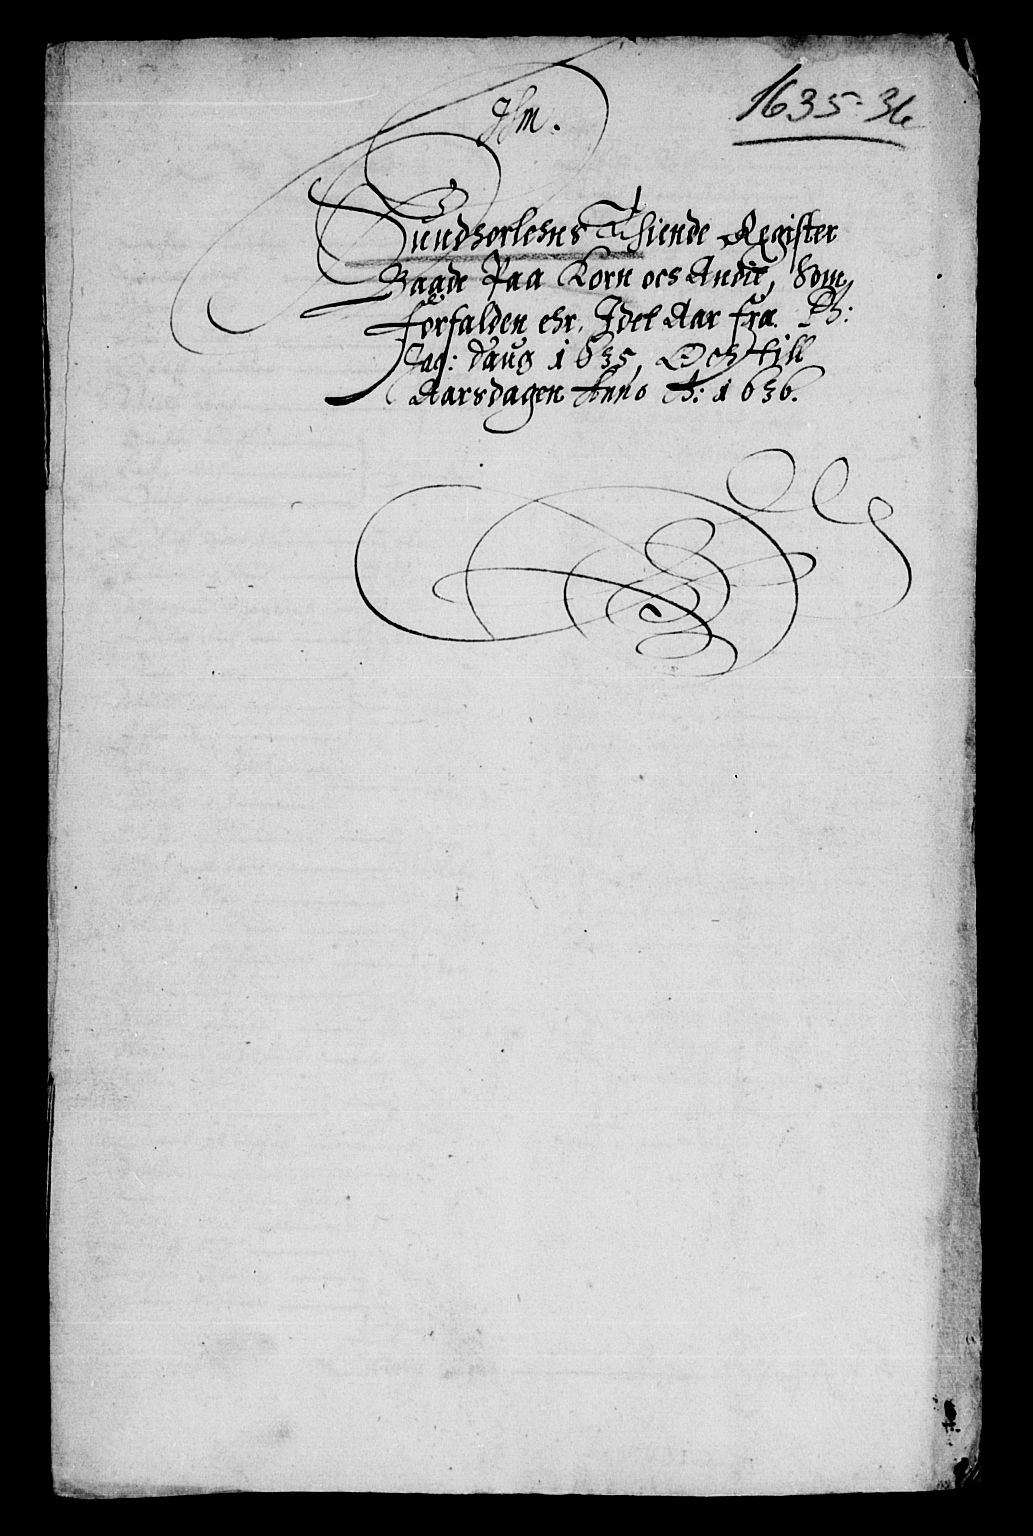 1635-36
Sundhorlehns Thiende Register
Baade Paa Korn och Andit, Som
Forfalden ehr, Idet Aar fra. Ph:
Jac: daug 1635, Och till
Aarsdagen Anno &: 1636.